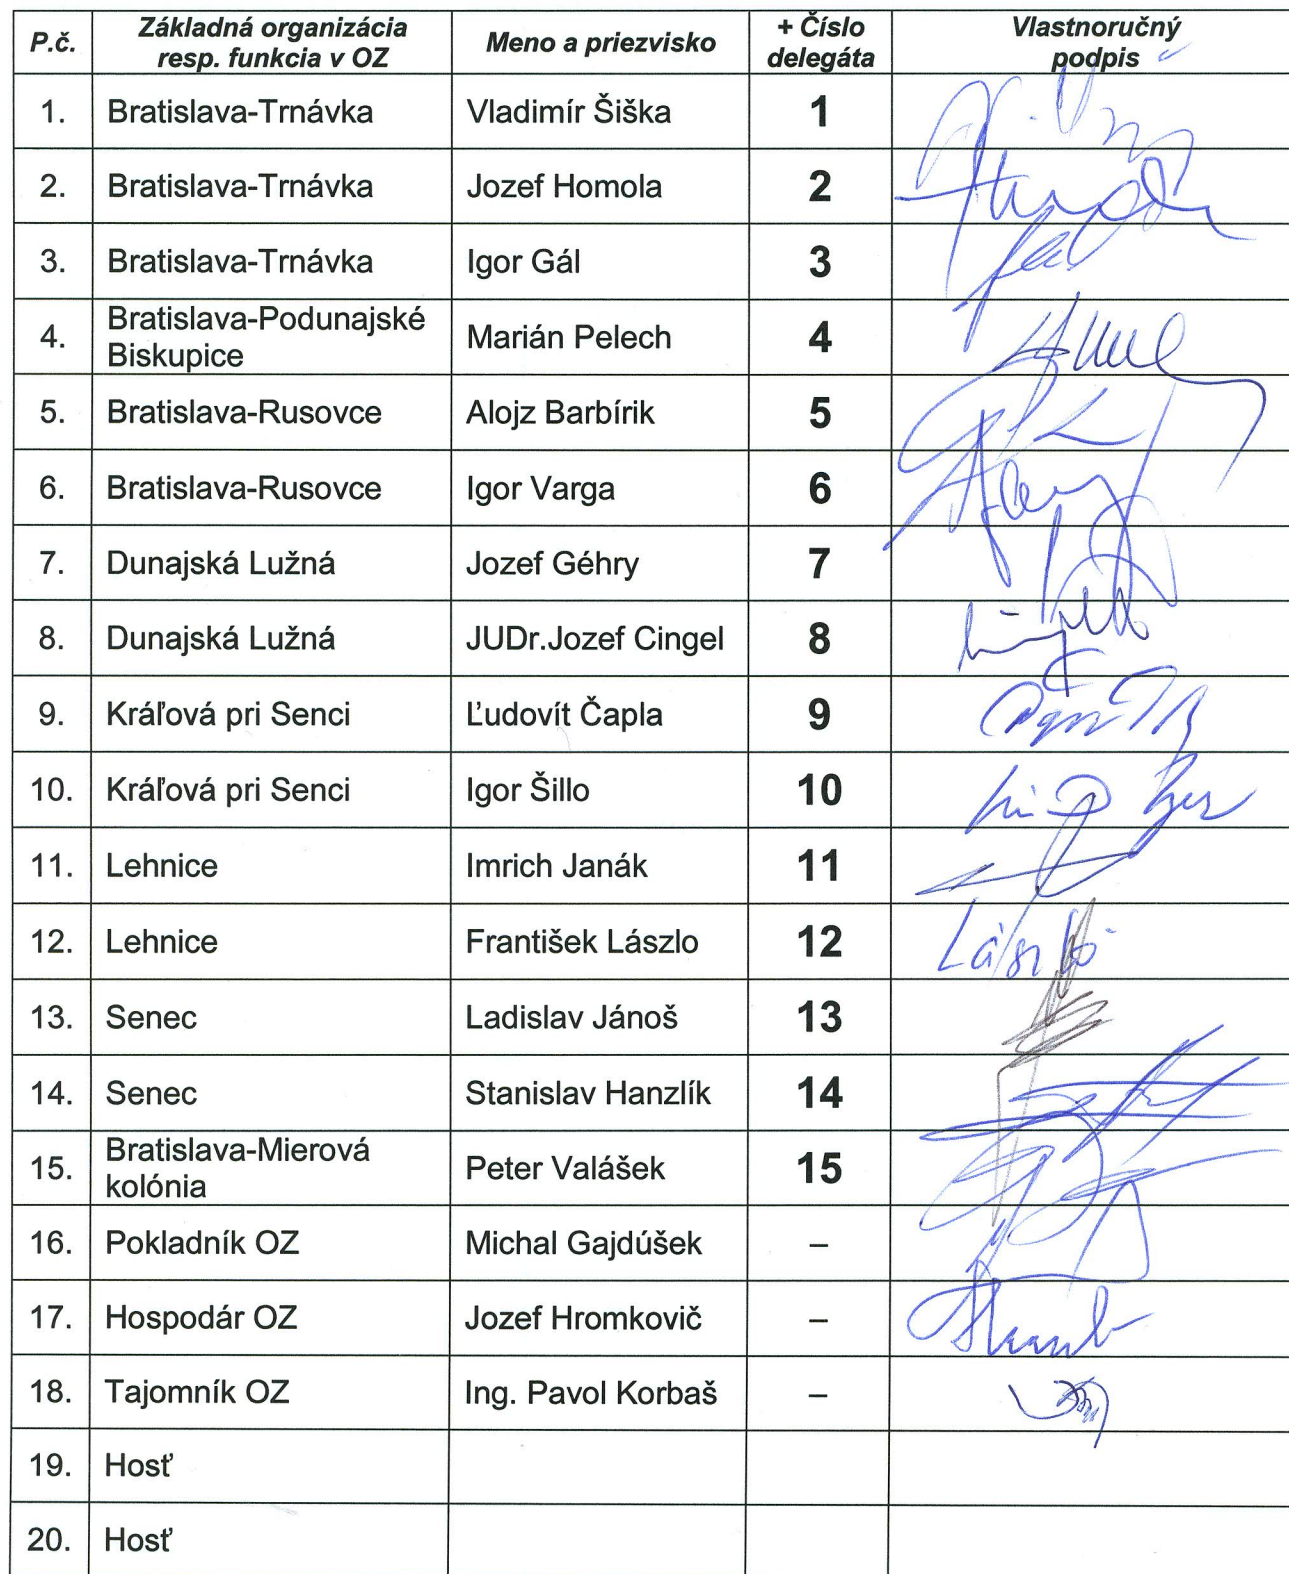 P.č. Základná organizácia resp. funkcia v OZ Meno a priezvisko + Číslo delegáta Vlastnoručný podpis
1. Bratislava-Trnávka Vladimír Šiška 1
2. Bratislava-Trnávka Jozef Homola 2
3. Bratislava-Trnávka Igor Gál 3
4. Bratislava-Podunajské Biskupice Marián Pelech 4
5. Bratislava-Rusovce Alojz Barbírik 5
6. Bratislava-Rusovce Igor Varga 6
7. Dunajská Lužná Jozef Géhry 7
8. Dunajská Lužná JUDr.Jozef Cingel 8
9. Kráľová pri Senci Ľudovít Čapla 9
10. Kráľová pri Senci Igor Šillo 10
11. Lehnice Imrich Janák 11
12. Lehnice František Lászlo 12 László
13. Senec Ladislav Jánoš 13
14. Senec Stanislav Hanzlík 14
15. Bratislava-Mierová kolónia Peter Valášek 15
16. Pokladník OZ Michal Gajdúšek –
17. Hospodár OZ Jozef Hromkovič –
18. Tajomník OZ Ing. Pavol Korbaš –
19. Hosť
20. Hosť